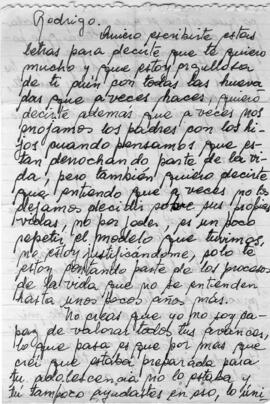 Rodrigo.
Quiero escribirte estas
letras para decirte que te quiero
mucho y que estoy orgullosa
de ti aún con todas las hueva
das que a veces haces, quiero
decirte además que a veces nos
enojamos los padres con los hi
jos cuando pensamos que es-
tan derrochando parte de la vi-
da, pero también quiero decirte
que entiendo que a veces no los
dejamos decidir sobre sus propias
vidas, no por joder, es un poco
repetir el modelo que tuvimos,
no estoy justificándome, solo te
estoy contando parte de los procesos
de la vida que no se entienden
hasta unos pocos años más.
No creas que yo no soy ca
paz de valorar todos tus avances,
lo que pasa es que por más que
creí que estaba preparada para
tu adolescencia no lo estaba y
tu tampoco ayudastes en eso, lo úni